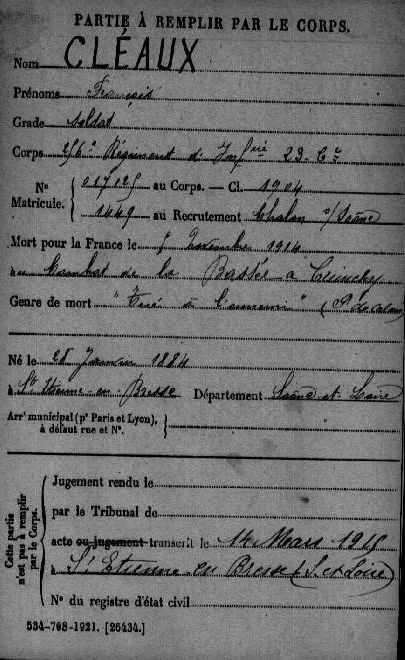 PARTIE À REMPLIR PAR LE CORPS.
Nom CLÉAUX
Prénoms François
Grade Soldat
Corps 256e Régiment d' Infrie 23e Cie
N° Matricule. { 017125 au Corps. — Cl. 1904
1449 au Recrutement Chalon s/Saône
Mort pour la France le Novembre 1914
au Combat de la Bassée à Cuinchy
Genre de mort "Tué à l'ennemi" (P. de Calais)
Né le 28 Janvier 1884
à St Etienne-en-Bresse Département Saône-et-Loire
Arrt municipal (pr Paris et Lyon),
à défaut rue et N°. }
Cette partie n'est pas à remplir par le Corps. {
Jugement rendu le
par le Tribunal de
acte ou jugement transcrit le 14 Mars 1915
à St Etienne en Bresse (S.et Loire)
N° du registre d'état civil
534-708-1921. [26434.]